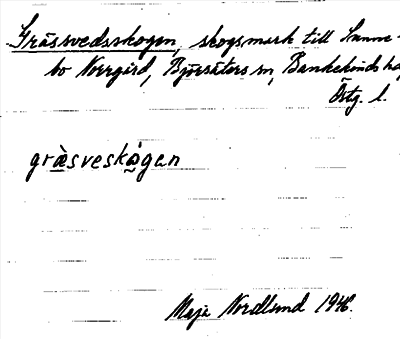 Gräsvedsskogen, skogsmark till Sunne-
bo Norrgård, Björsäters sn, Bankekinds hd
Östg. l.
gräsveskògen
Maja Nordlund 1946.